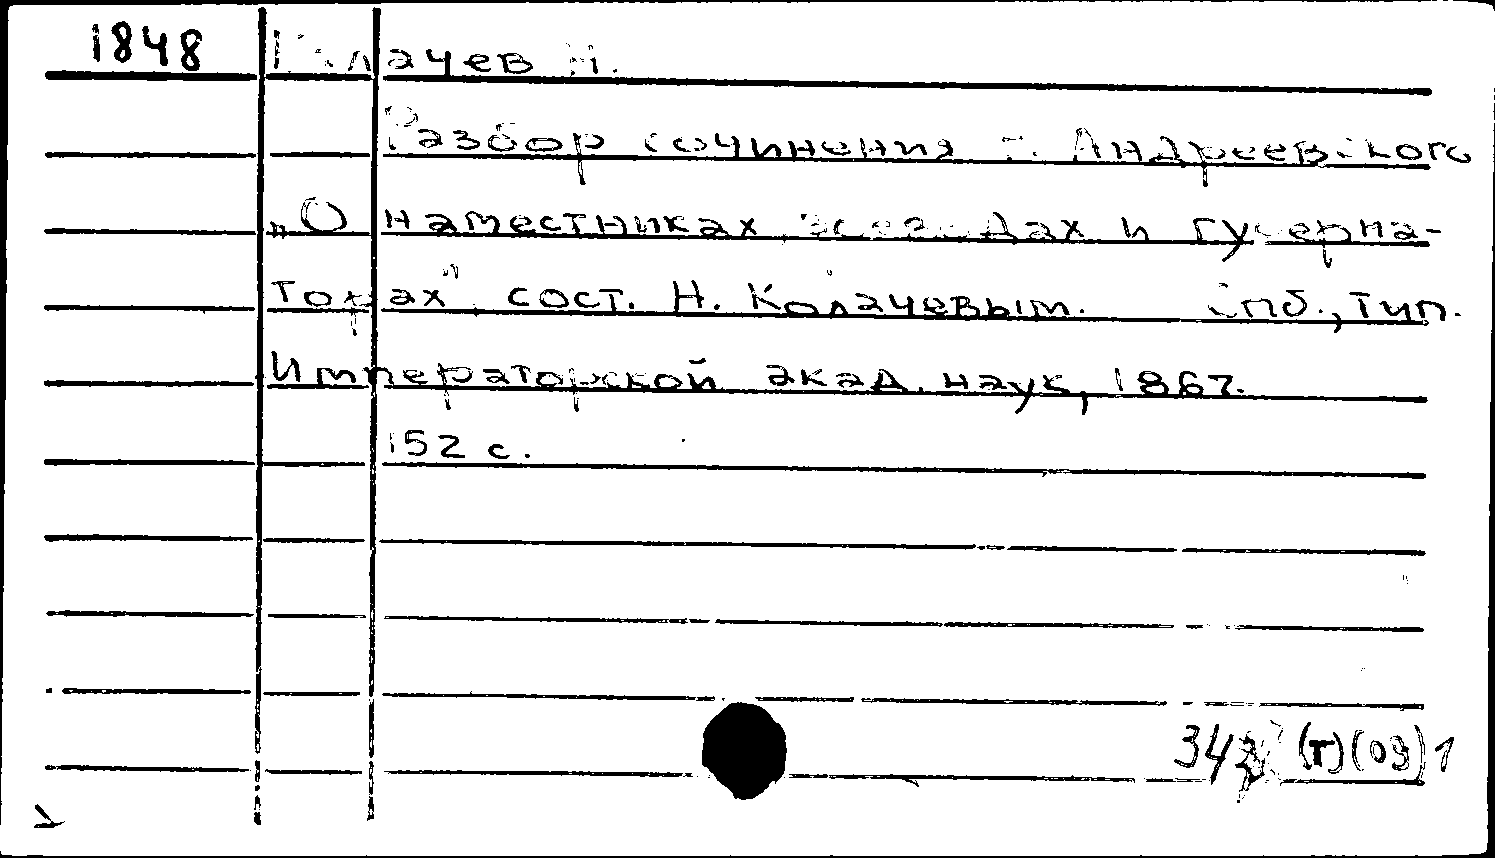 1848 Калачев Н.
Разбор сочинения г. Андреевского
„О наместниках, воеводах и губерна-
торах", сост. Н. Колачевым. Спб., тип.
Императорской акад. наук, 1867.
152 с.
(Т)(09)1